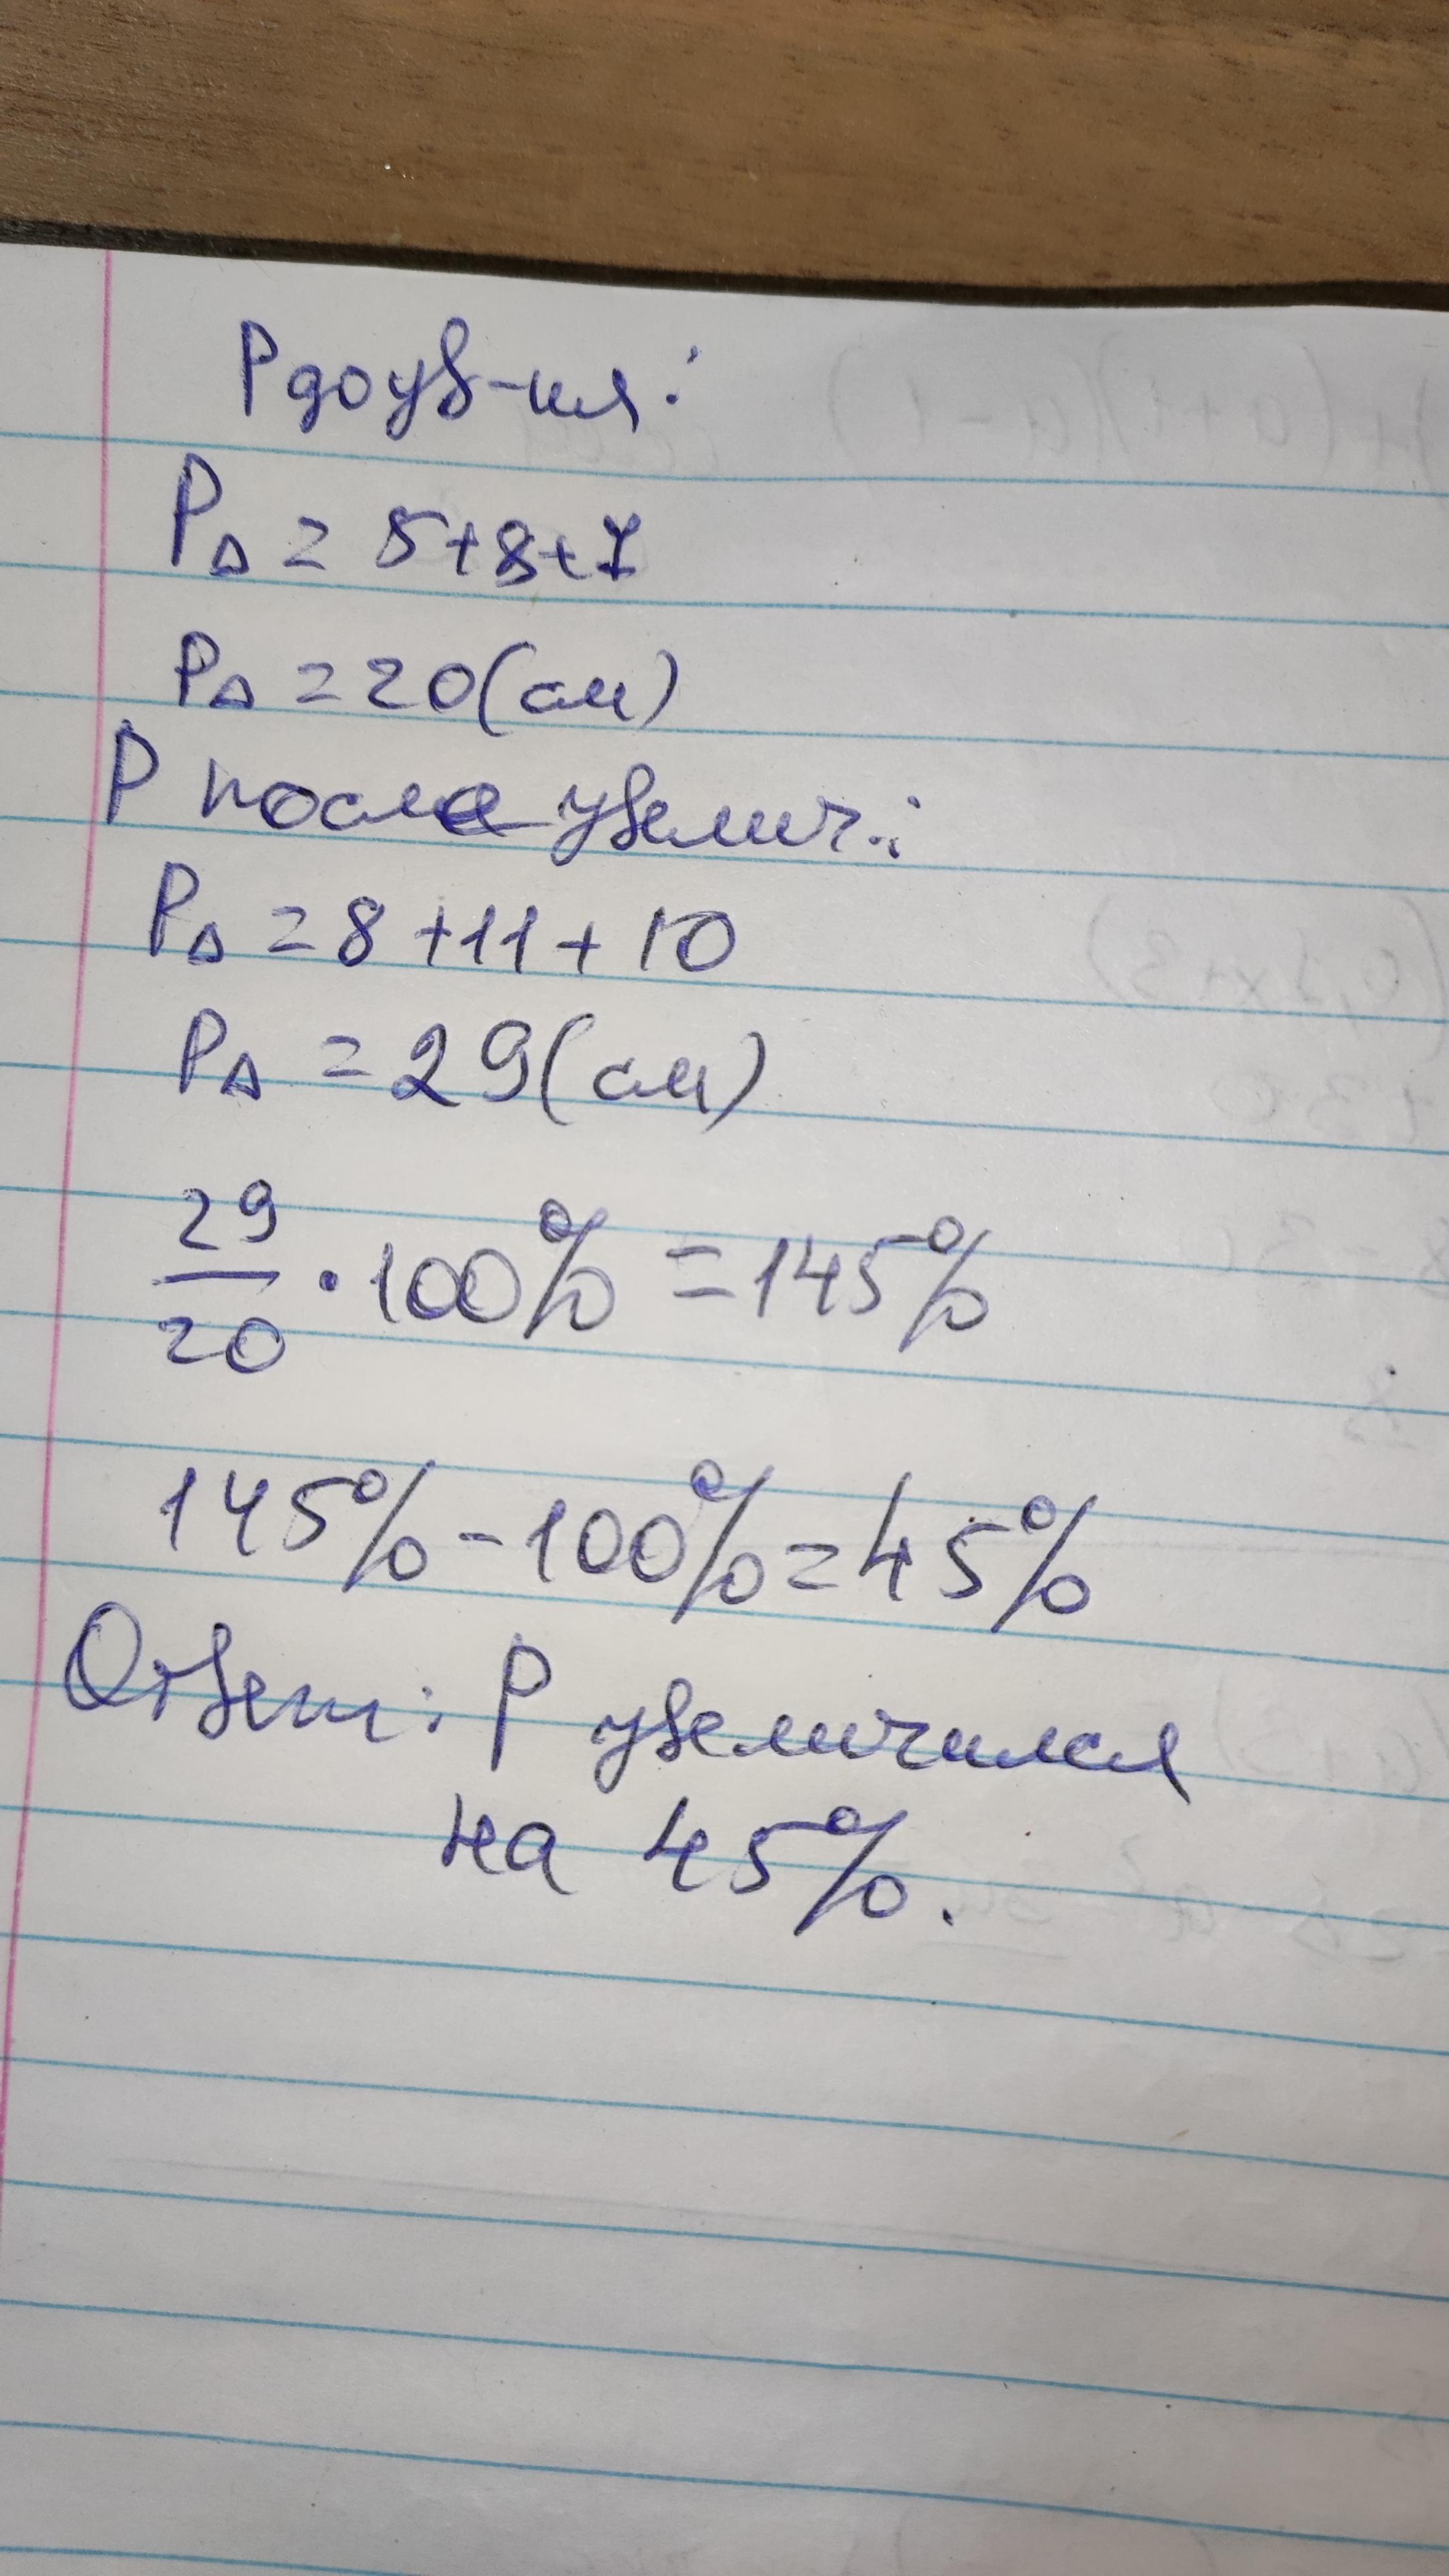 P до ув-ния:
P△ = 5+8+7
P△ = 20(см)
P после увелич.:
P△ = 8+11+10
P△ = 29(см)
29/20 · 100% = 145%
145% - 100% = 45%
Ответ: P увеличился
на 45%.